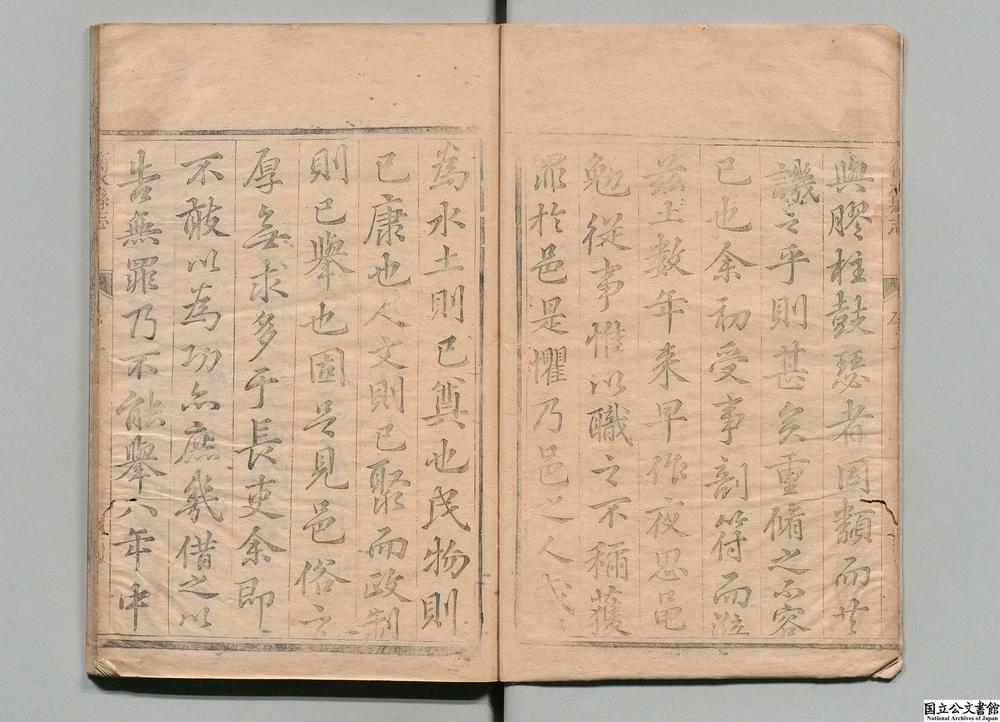 與膠柱鼓瑟者固類而其
譏之乎則甚矣重脩之不容
已也余初受事剖符而涖
茲土數年來早作夜思黽
勉從事惟以職之不稱獲
罪於邑是懼乃邑之人咸
為水土則已奠也民物則
已康也人文則已聚而政制
則已舉也固足見邑俗之
厚無求多于長吏余即
不敢以為功亦庶幾借之以
告無罪乃不能舉八年中
縣志
国立公文書館
National Archives of Japan